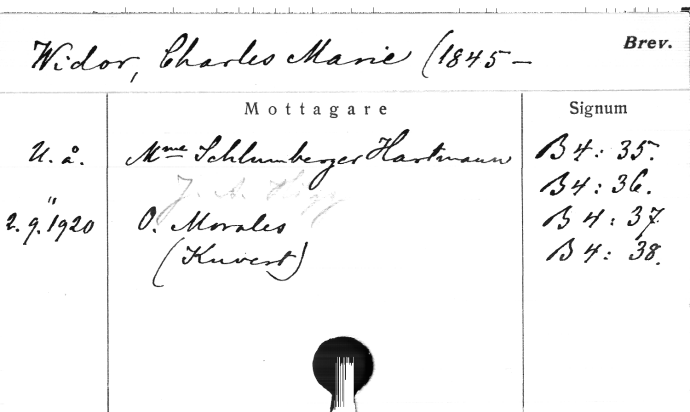 Widor, Charles Marie (1845 — Brev.
Mottagare Signum
U. å. Mme Schlumberger Hartmann B 4: 35.
" J. A. B 4: 36.
2. 9. 1920 O. Morales B 4: 37
(Kuvert) B 4: 38.